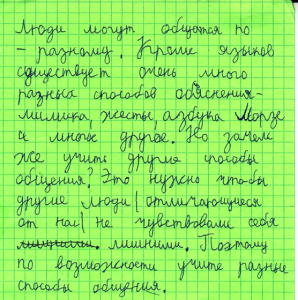 Люди могут общатся по
- разному. Кроме языков
существует очень много
разных способов объяснения-
мимика, жесты, азбука Морзе
и многое другое. Но зачем
же учить другие способы
общения? Это нужно что-бы
другие люди (отличающиеся
от нас) не чувствовали себя
лишними. Поэтому
по возможности учите разные
способы общения.